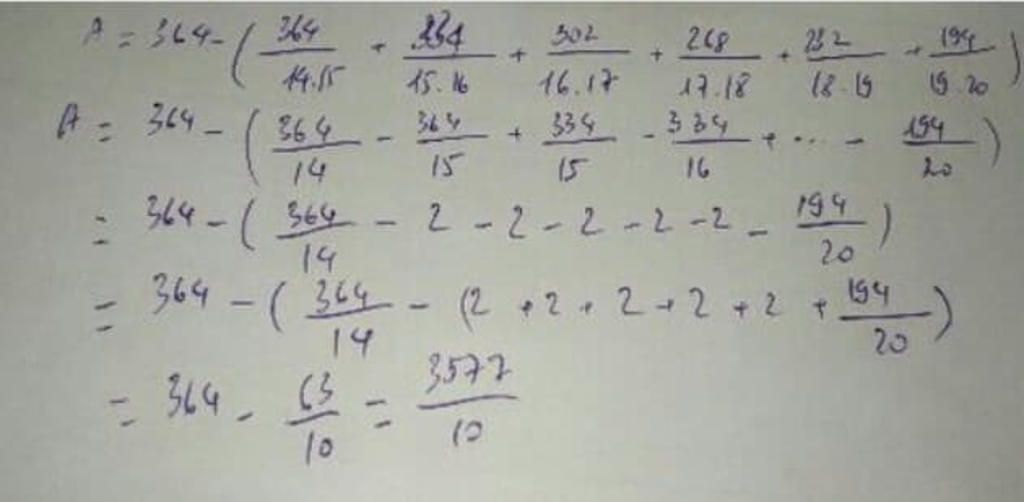 A = 364 - ( 364/14.15 + 334/15.16 + 302/16.17 + 268/17.18 + 232/18.19 + 194/19.20 )
A = 364 - ( 364/14 - 364/15 + 334/15 - 334/16 + ... - 194/20 )
= 364 - ( 364/14 - 2 - 2 - 2 - 2 - 2 - 194/20 )
= 364 - ( 364/14 - (2 + 2 + 2 + 2 + 2 + 194/20 )
= 364 - 63/10 = 3577/10